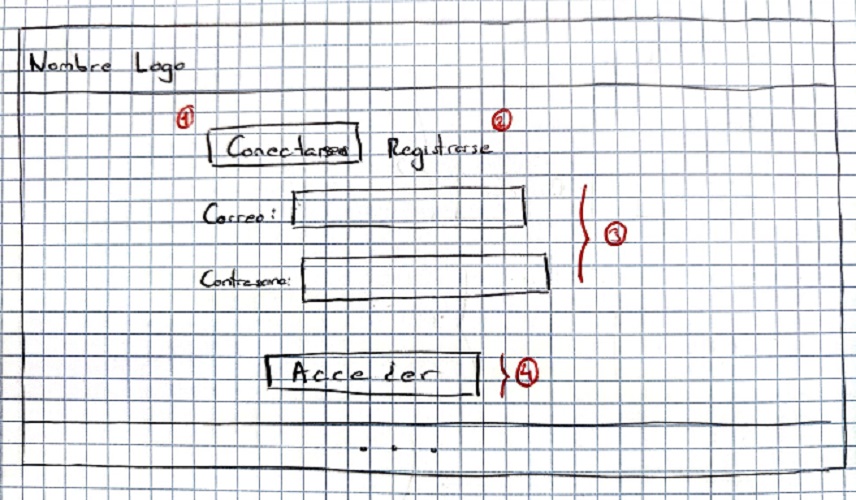 Nombre Logo
① ②
Conectarse Registrarse
Correo:
③
Contraseña:
Acceder ④
. . .